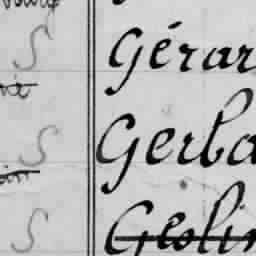 S Gérar
S Gerba
S Geolin